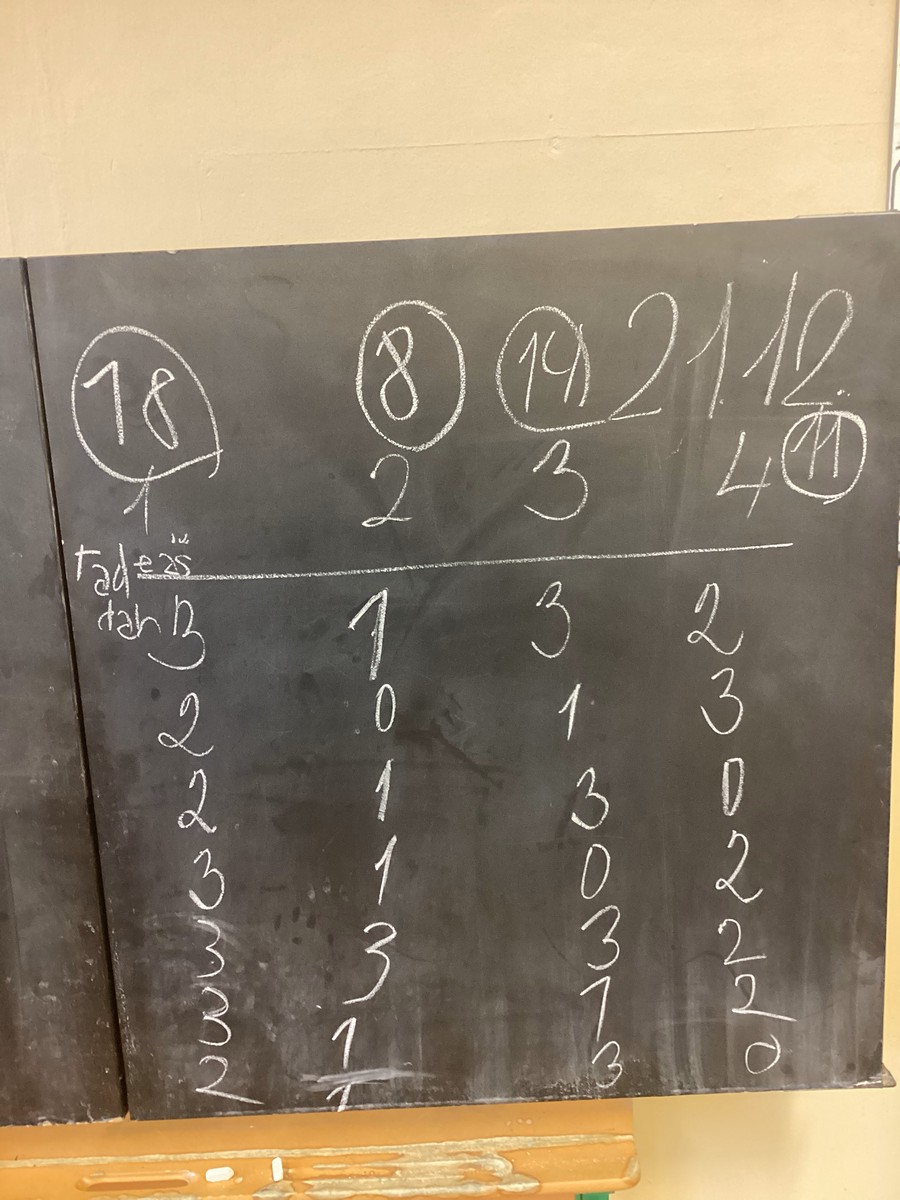 18 8 14 21.12.
1 2 3 4 11
3 1 3 2
2 0 1 3
2 1 3 0
3 1 0 2
3 3 3 2
3 1 1 2
2 1 3 0